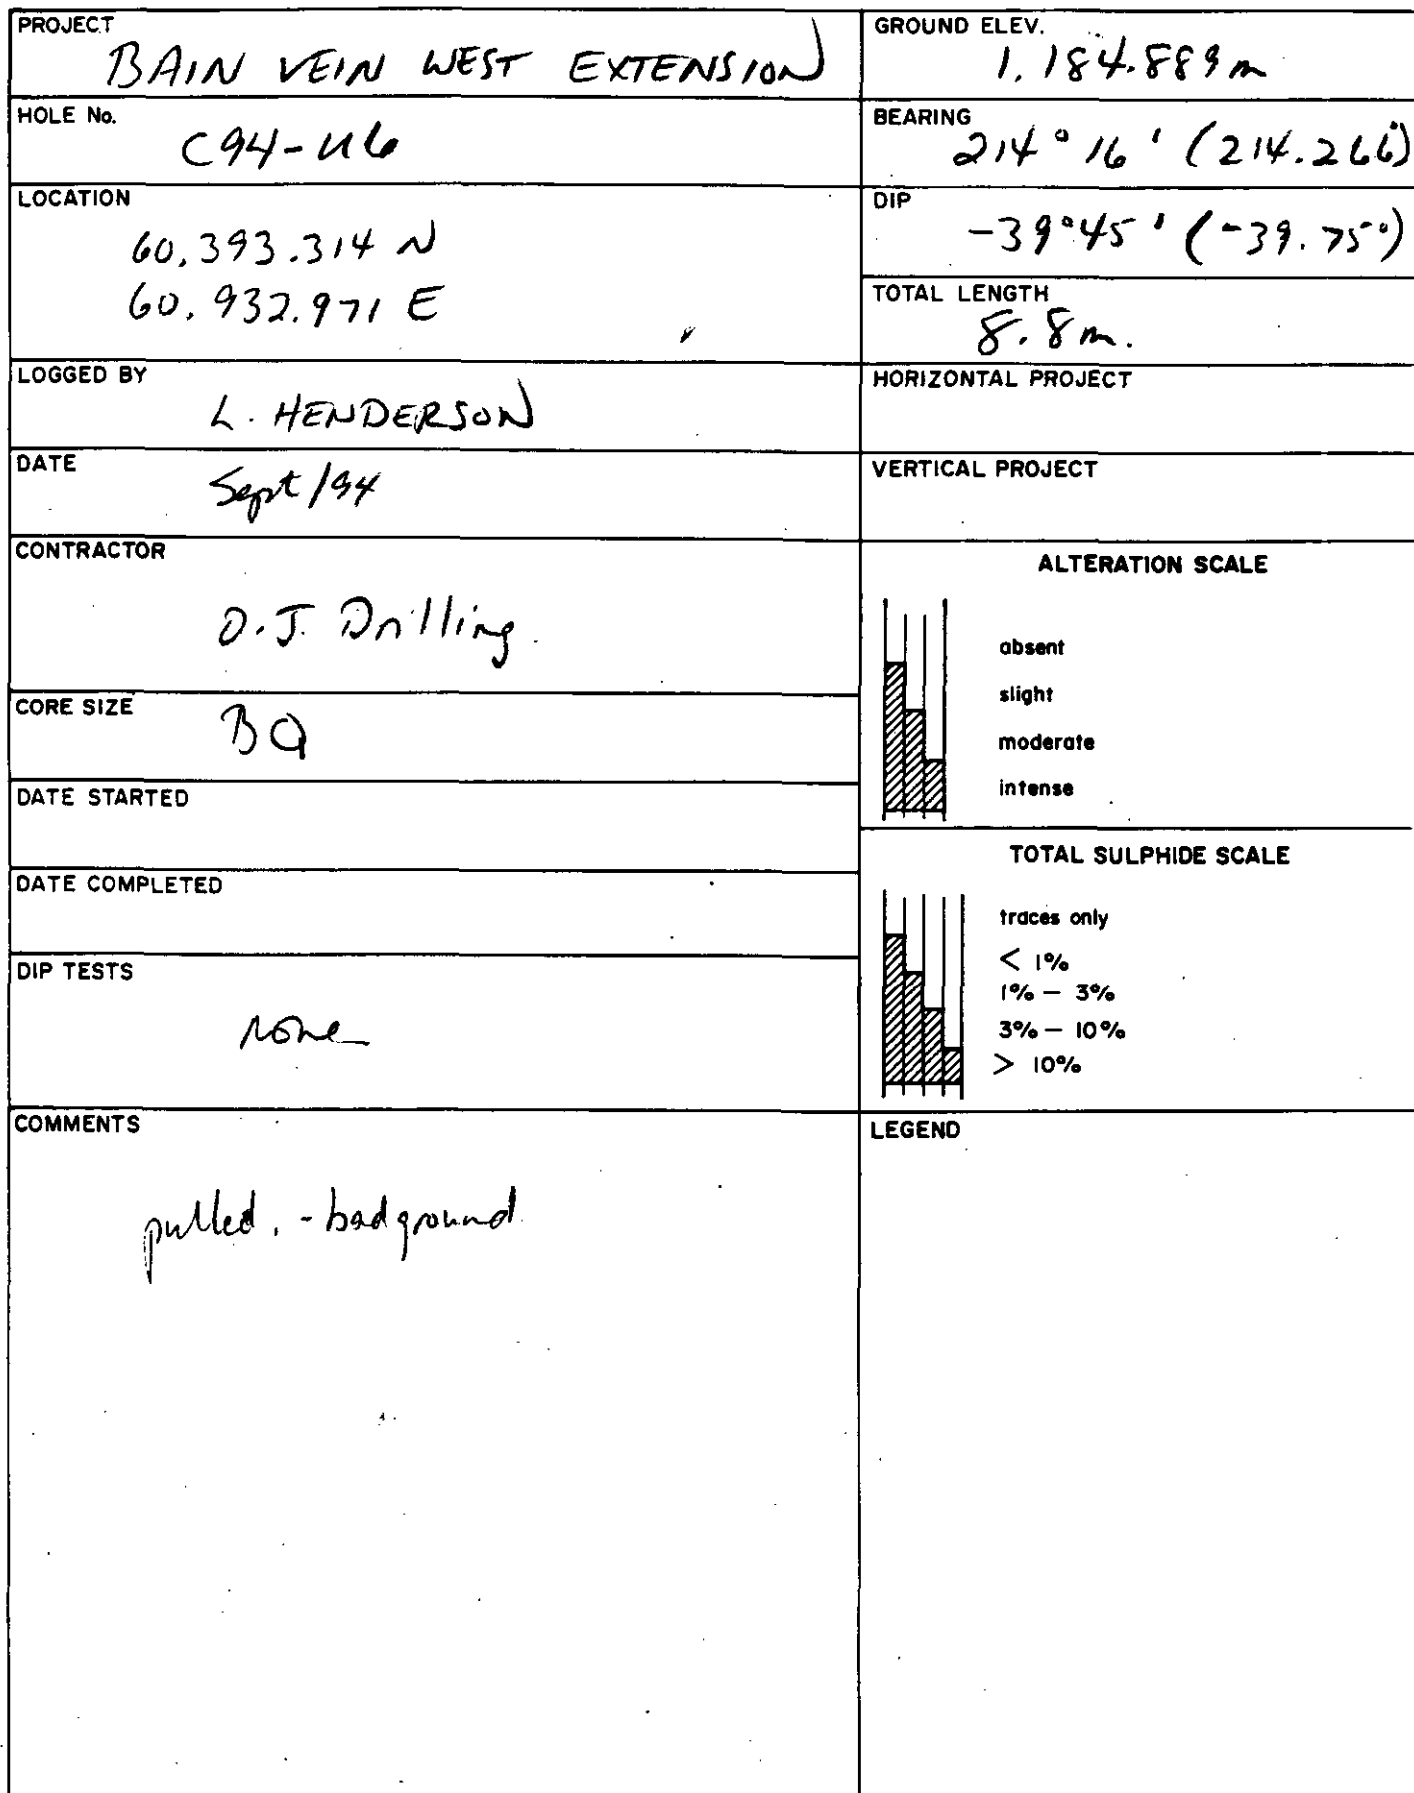 PROJECT
BAIN VEIN WEST EXTENSION
HOLE No.
C94-U6
LOCATION
60,393.314 N
60,932.971 E
LOGGED BY
L. HENDERSON
DATE
Sept/94
CONTRACTOR
D.J. Drilling
CORE SIZE
BQ
DATE STARTED
DATE COMPLETED
DIP TESTS
none
COMMENTS
pulled. - bad ground
GROUND ELEV.
1,184.889m
BEARING
214° 16' (214.266°)
DIP
-39°45' (-39.75°)
TOTAL LENGTH
8.8m.
HORIZONTAL PROJECT
VERTICAL PROJECT
ALTERATION SCALE
absent
slight
moderate
intense
TOTAL SULPHIDE SCALE
traces only
< 1%
1% – 3%
3% – 10%
> 10%
LEGEND